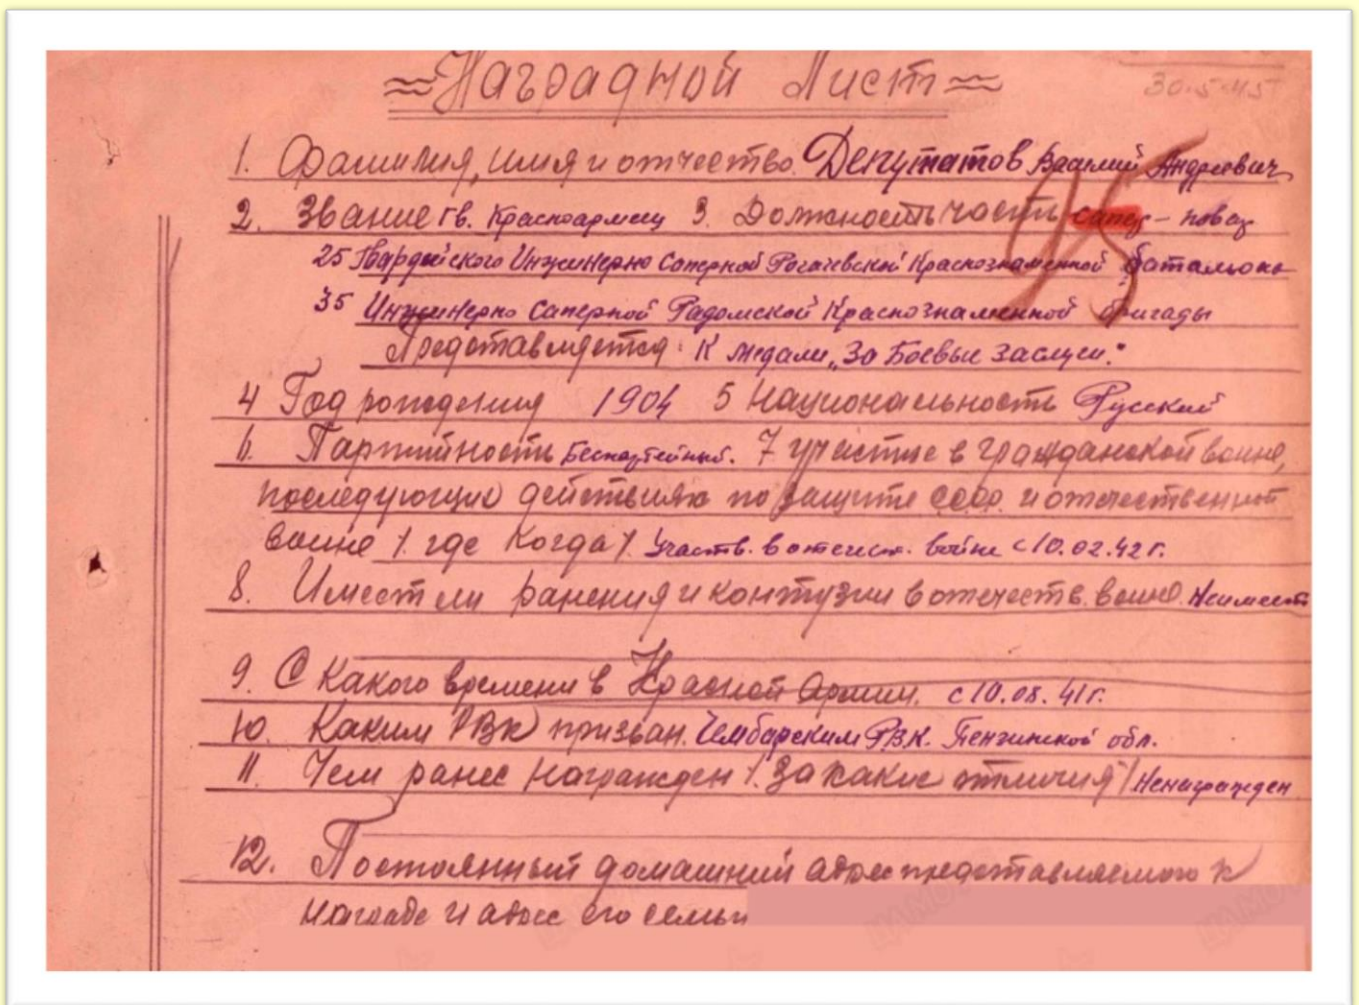 Наградной Лист
30.5.45
1. Фамилия, имя и отчество Депутатов Василий Андреевич
2. Звание Гв. Красноармеец 3. Должность часть сапер - повар
25 Гвардейского Инженерно Саперной Рогачевской Краснознаменной батальона
35 Инженерно Саперной Радомской Краснознаменной бригады
Представляется К медали „За Боевые заслуги."
4 Год рождения 1904 5 Национальность Русский
6. Партийность Беспартейный. 7 участие в гражданской воине,
последующих действиях по защите СССР и отечественной
воине /. где когда /. Участв. в отечест. войне с 10.02.42 г.
8. Имеет ли ранения и контузии в отечеств. воине. Не имеет
9. С какого времени в Красной Армии. с 10.08.41 г.
10. Каким РВК призван. Чембарским Р.В.К. Пензинской обл.
11. Чем ранее награжден /. За какие отличия / Ненагражден
12. Постоянный домашний адрес представляемого к
награде и адрес его семьи